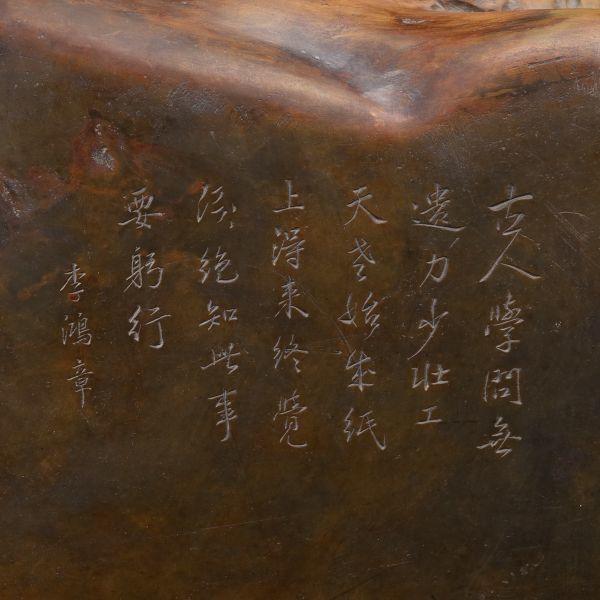 古人學問無
遺力少壯工
天老始成紙
上得来終覺
淺絕知此事
要躬行
李鴻章